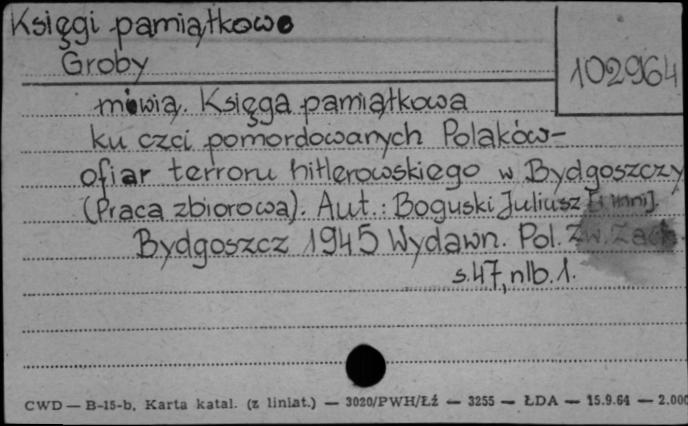 Księgi pamiątkowe
Groby
102964
mówią. Księga pamiątkowa
ku czci pomordowanych Polaków-
ofiar terroru hitlerowskiego w Bydgoszczy
(Praca zbiorowa). Aut.: Boguski Juliusz [i inni].
Bydgoszcz 1945 Wydawn. Pol. Zw. Zach.
s. 47, nlb. 1.
CWD — B-15-b, Karta katal. (z liniat.) — 3020/PWH/Łź — 3255 — ŁDA — 15.9.64 — 2.000